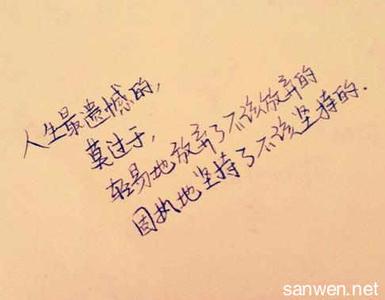 人生最遗憾的,
莫过于,
轻易地放弃了不该放弃的
固执地坚持了不该坚持的.
sanwen.net